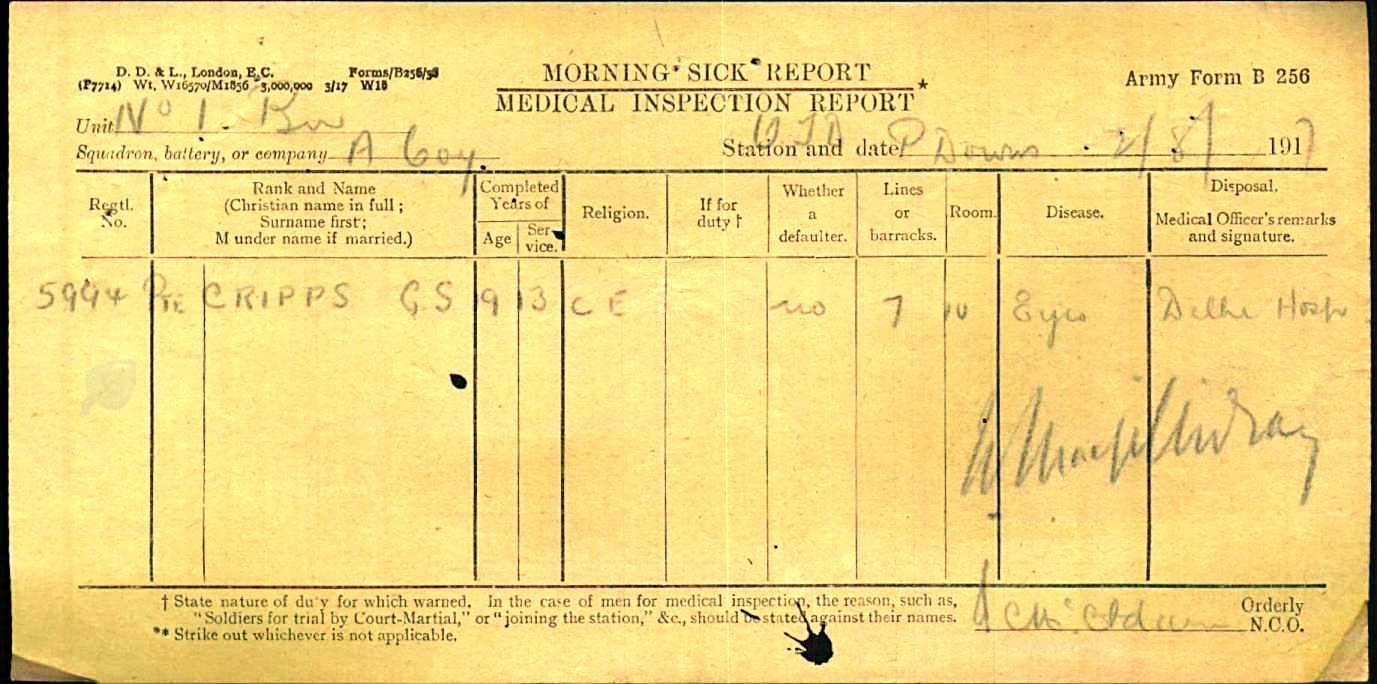 D. D. & L., London, E.C. Forms/B256/38
(P7714) Wt. W16570/M1856 3,000,000 3/17 W18
MORNING SICK REPORT
MEDICAL INSPECTION REPORT *
Army Form B 256
Unit No 1. Bn
Squadron, battery, or company A Coy
Station and date P Downs 2/8/ 1917
Regtl. No.
Rank and Name (Christian name in full; Surname first; M under name if married.)
Completed Years of
Age
Service.
Religion.
If for duty †
Whether a defaulter.
Lines or barracks.
Room.
Disease.
Disposal. Medical Officer's remarks and signature.
5994 Pte CRIPPS G.S 19 13 C E no 7 10 Eyes Hosp
† State nature of duty for which warned. In the case of men for medical inspection, the reason, such as,
"Soldiers for trial by Court-Martial," or "joining the station," &c., should be stated against their names.
** Strike out whichever is not applicable.
Orderly
N.C.O.